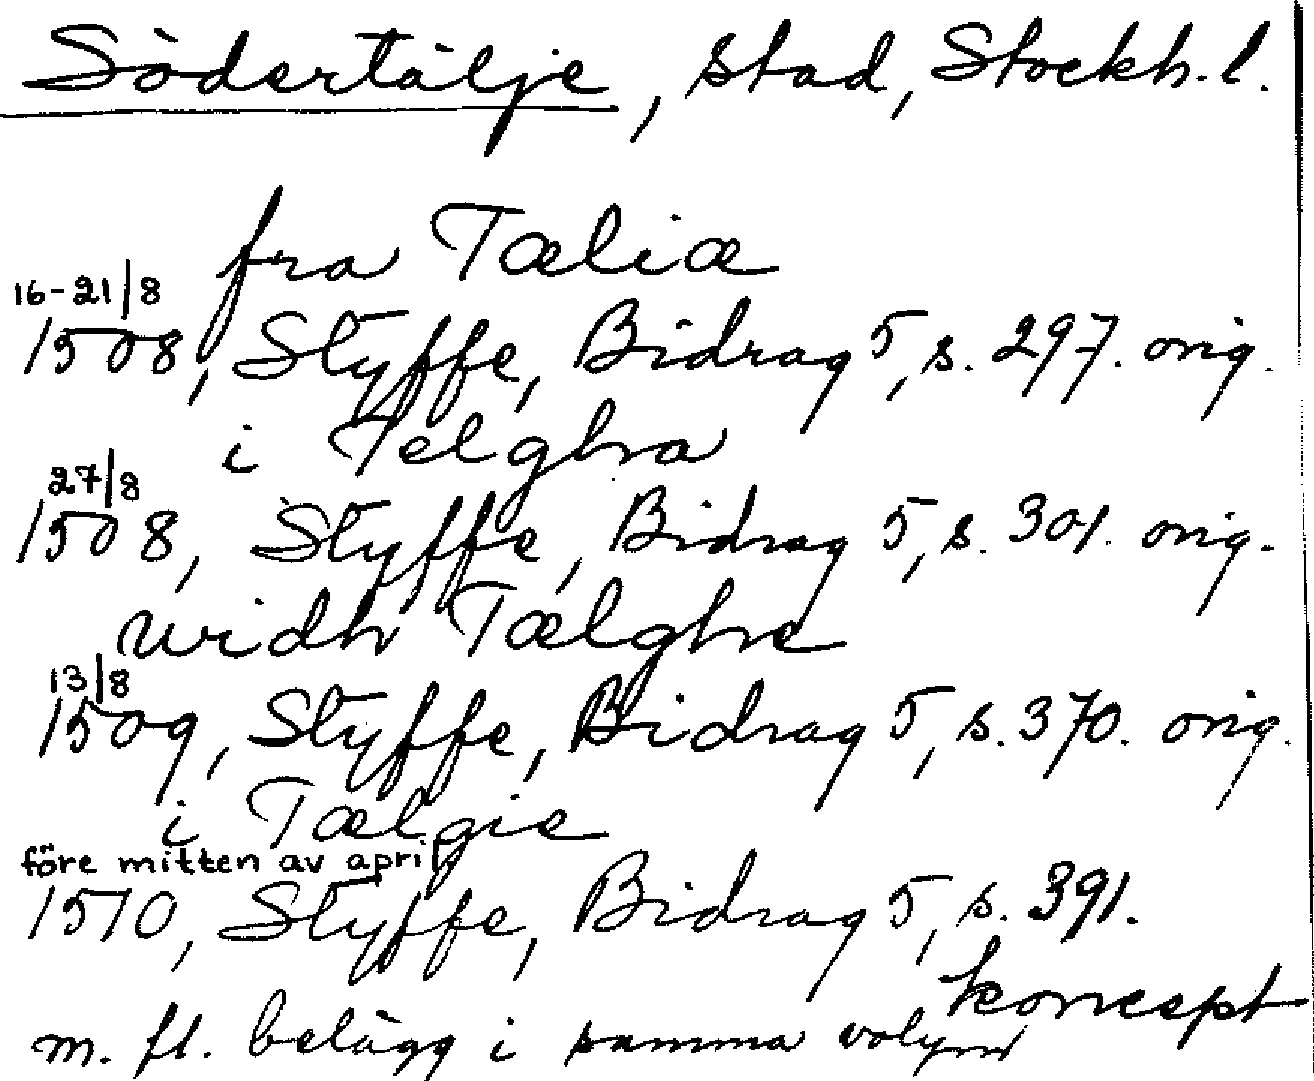 Södertälje, stad, Stockh. l.
fra Tæliæ
16-21/8
1508, Styffe, Bidrag 5, s. 297. orig.
i Telghra
27/8
1508, Styffe, Bidrag 5, s. 301. orig.
widh Tælghe
13/8
1509, Styffe, Bidrag 5, s. 370. orig.
i Tælgie
före mitten av april
1510, Styffe, Bidrag 5, s. 391.
koncept
m. fl. belägg i samma volym